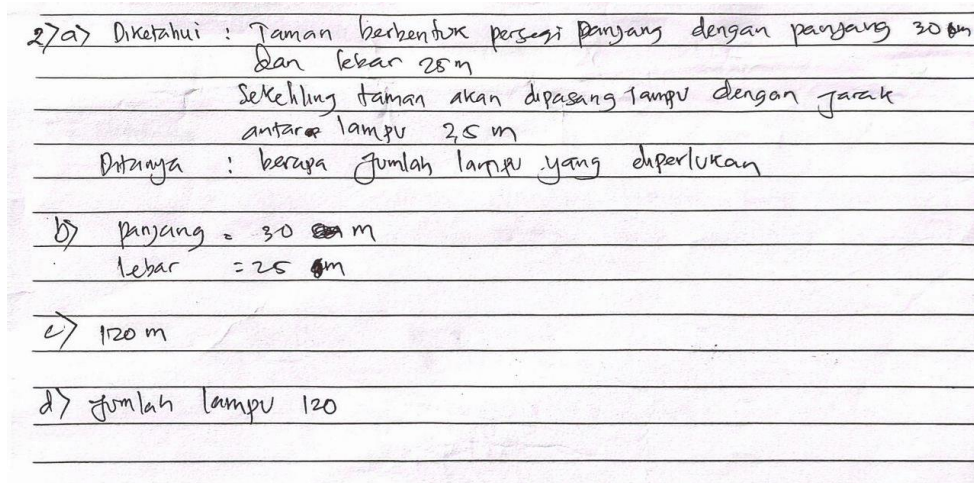 2) a) Diketahui : Taman berbentuk persegi panjang dengan panjang 30 m
dan lebar 25 m
Sekeliling taman akan dipasang lampu dengan jarak
antar lampu 2,5 m
Ditanya : berapa jumlah lampu yang diperlukan
b) panjang = 30 m
lebar = 25 m
c) 120 m
d) Jumlah lampu 120